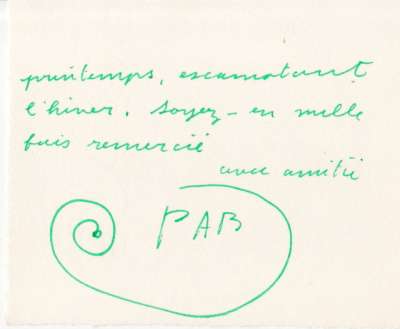 printemps, escamotant
l'hiver. Soyez-en mille
fois remercié
avec amitié
PAB